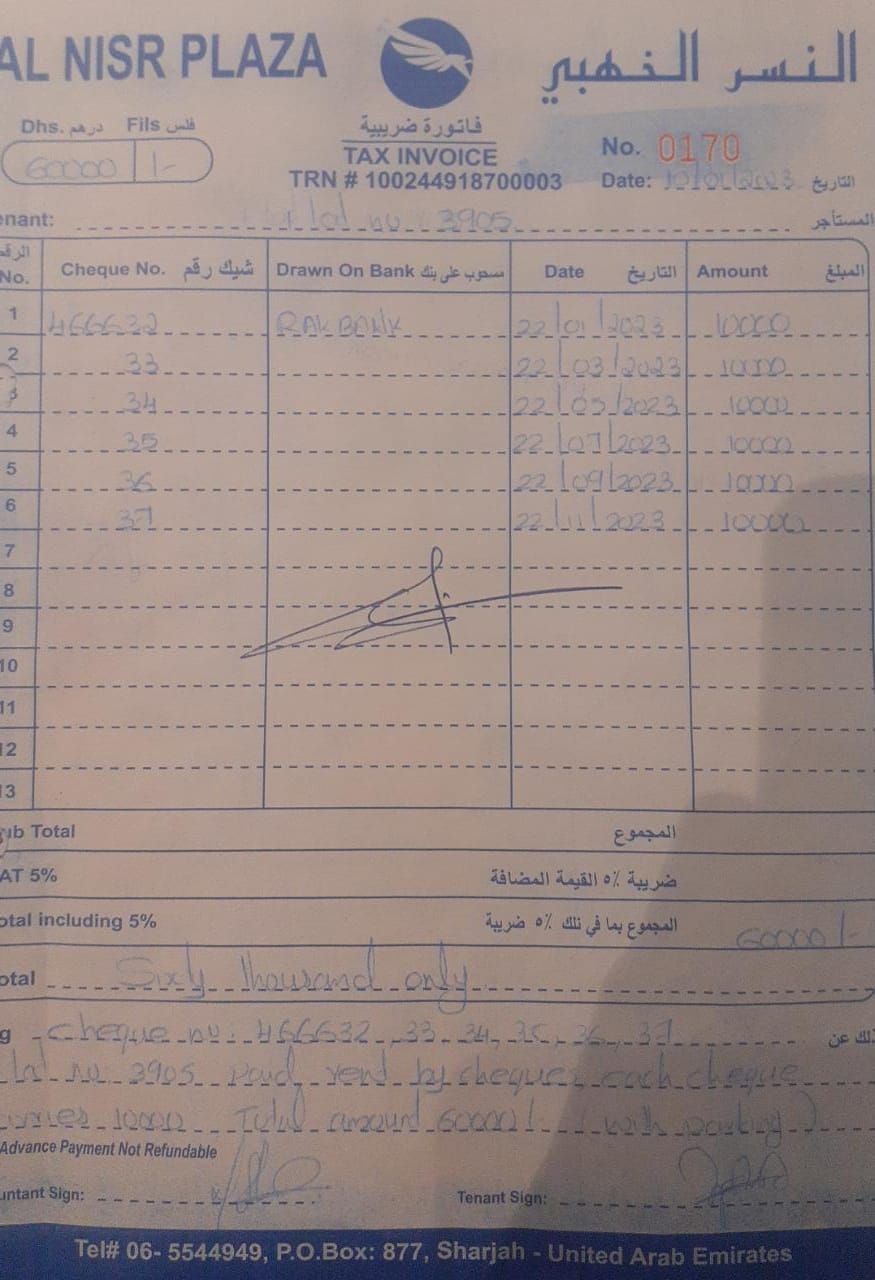 AL NISR PLAZA
النسر الذهبي
Dhs. درهم Fils فلس
60000 /-
فاتورة ضريبية
TAX INVOICE
TRN # 100244918700003
No. 0170
Date: 10/01/2023 التاريخ
enant: Flat no: 3905 المستأجر
الرقم No. Cheque No. شيك رقم Drawn On Bank مسحوب على بنك Date التاريخ Amount المبلغ
1 466632 RAK BANK 22/01/2023 10000
2 33 22/03/2023 10000
3 34 22/05/2023 10000
4 35 22/07/2023 10000
5 36 22/09/2023 10000
6 37 22/11/2023 10000
7
8
9
10
11
12
13
ub Total المجموع
AT 5% ضريبة ٥٪ القيمة المضافة
otal including 5% المجموع بما في ذلك ٥٪ ضريبة 60000/-
otal Sixty thousand only
g Cheque no: 466632, 33, 34, 35, 36, 37 ذلك عن
lat no: 3905 Paid rent by cheques each cheque
10000 Total amount 60000/- (with parking)
Advance Payment Not Refundable
untant Sign: Tenant Sign:
Tel# 06- 5544949, P.O.Box: 877, Sharjah - United Arab Emirates